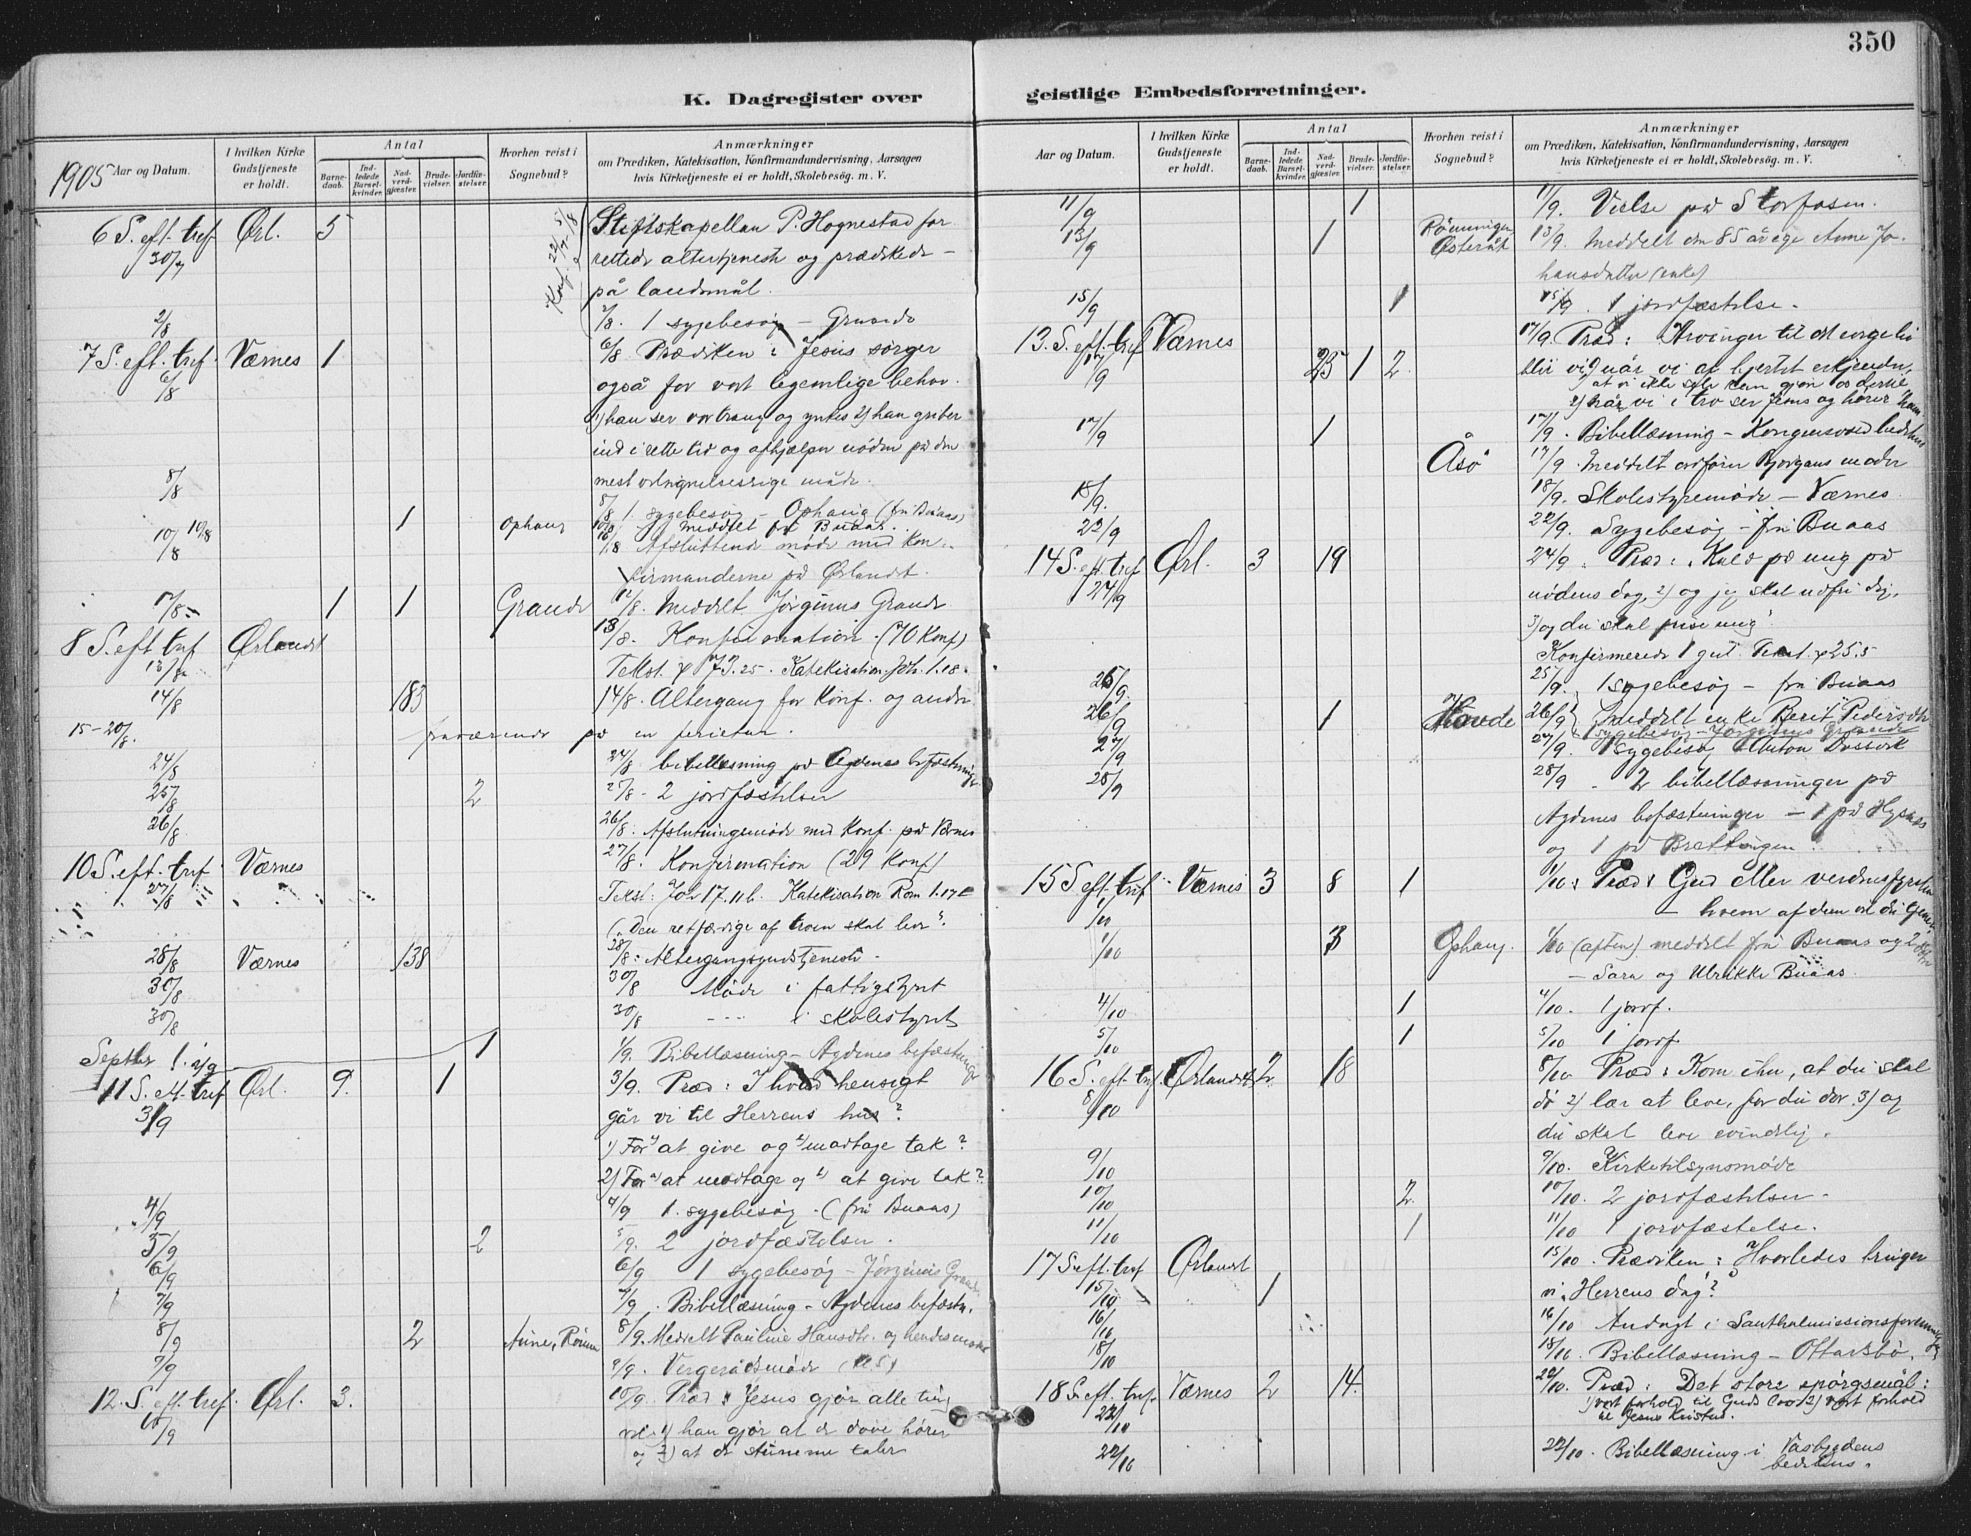 350
K. Dagregister over
geistlige Embedsforretninger.
1905
Aar og Datum.
I hvilken Kirke Gudstjeneste er holdt.
Antal
Barnedaab.
Indledede Barselkvinder.
Nadverdgjæster.
Brudevielser.
Jordfæstelser.
Hvorhen reist i Sognebud?
Anmærkninger
om Prædiken, Katekisation, Konfirmandundervisning, Aarsagen
hvis Kirketjeneste ei er holdt, Skolebesøg. m. V.
6 S. eft. tref. Ørl. 5 Stiftskapellan P. Hognestad for
30/7 rettede altertjeneste og prædikede -
på landsmål.
2/8 2/8. 1 sygebesøg - Grande
7 S. eft. tref. Værnes 1 6/8 Prædiken: Jesus sørger
6/8 også for vort legemlige behov.
1) han ser vor trang og ynkes 2) han griber
ind i rette tid og afhjælper nøden på den
mest velsignelsesrige måde.
8/8 8/8 1 sygebesøg - Ophaug (fru Buaas)
10/8 1 Ophaug 10/8 Meddelt fru Buaas.
10/8 10/8 Afsluttende møde med kon-
firmanderne på Ørlandt.
1 1 Grande 12/8. Meddelt Jørginus Grande
8 S. eft tref Ørlandt 13/8. Konfirmation. (70 Konf)
13/8 Tekst. ψ 73.25. Katekisation Joh. 1.18.
14/8 183 14/8. Altergang for Konf. og andre
15-20/8. fraværende på en ferietur.
24/8 24/8 bibellæsning på Agdenes befæstninger
25/8 2 25/8 - 2 jordfæstelser
26/8 26/8. Afslutningsmøde med Konf. på Værnes
10 S. eft. tref Værnes 27/8. Konfirmation (29 Konf)
27/8 Tekst: Joh 17.11b. Katekisation Rom 1.17
("Den retfærdige af troen skal leve".
28/8 Værnes 138 28/8: Altergangsgudstjeneste.
30/8 30/8 Møde i fattigstyret
30/8 30/8 --- i skolestyret
Septbr 1. 1/9 1 1/9. Bibellæsning - Agdenes befæstninger
11 S. eft. tref Ørl. 9. 1 3/9. Præd: I hvad hensigt
3/9 går vi til Herrens hus?
1) For 1) at give og 2) modtage tak?
2) For 1) at modtage og 2) at give tak?
4/9 4/9 1. sygebesøg. (fru Buaas)
5/9 2 5/9. 2 jordfæstelser.
6/9 6/9 1 sygebesøg - Jørginus Grande
7/9 7/9. Bibellæsning - Agdenes befæstn.
8/9 2 8/9. Meddelt Pauline Hansdtr. og hendes
9/9 9/9. Vergerådsmøde
12. S. eft. tref. Ørl. 3. 10/9. Præd: Jesus gjør alle ting
10/9 vel: 1) han gjør at de døve hører
og 2) at de stumme taler
Aar og Datum.
I hvilken Kirke Gudstjeneste er holdt.
Antal
Barnedaab.
Indledede Barselkvinder.
Nadverdgjæster.
Brudevielser.
Jordfæstelser.
Hvorhen reist i Sognebud?
Anmærkninger
om Prædiken, Katekisation, Konfirmandundervisning, Aarsagen
hvis Kirketjeneste ei er holdt, Skolebesøg. m. V.
11/9 1 11/9. Vielse på Storfosen.
13/9 1 Østeråt 13/9. Meddelt den 85 årige Anne Jo-
hansdatter (enke)
15/9 1 15/9. 1 jordfæstelse.
13. S. eft. tref Værnes 17/9. Præd: Arvinger til det evige liv
17/9 25 1 2 blir vi 1) når vi af hjertet erkjender,
at vi ikke selv kan gjøre os dertil
2) når vi i tro ser Jesus og hører ham
17/9 1 17/9. Bibellæsning - Kongensvold bedehus
Åsø 17/9. Meddelt ordfører Bjørgans moder
18/9. 18/9. Skolestyremøde - Værnes
23/9 22/9. Sygebesøg - fru Buaas
14 S. eft. tref Ørl. 3 19 24/9. Præd: "Kald på mig på
24/9 nødens dag, 2) og jeg skal udfri dig,
3) og du skal prise mig"
Konfirmerede 1 gut. Tekst. ψ 25.5
25/9 25/9. 1 sygebesøg - fru Buaas
26/9 1 Hovde 26/9 meddelt enke Berit Pedersdtr
sygebesøg - Jørginus Grande
27/9 27/9. 1 sygebesø Anton Dossvik
28/9 28/9. 2 bibellæsninger på
Agdenes befæstninger - 1 på Hysnes
og 1 på Brettingen
15 S eft. tref. Værnes 3 8 1 1/10: Præd: Gud eller verdensfyrsten
1/10 - hvem af dem vil du tjene
1/10 3 Ophaug. 1/10 (aften) meddelt fru Buaas og 2 døtre
- Sara og Ulrikke Buaas.
4/10 1 4/10. 1 jordf.
5/10 1 5/10 1 jordf.
16 S. eft. tref. Ørlandt 2 18 8/10 Præd: Kom ihu, at du skal
8/10 dø 2) lær at leve, før du dør. 3) og
du skal leve evindelig.
9/10 9/10. Kirketilsynsmøde
10/10 2 10/10. 2 jordfæstelser.
11/10 1 11/10 1 jordfæstelse.
17 S eft. tref Ørlandt 15/10. Prædiken: Hvorledes bruger
15/10 1 vi Herrens dag?
16/10 16/10 Andagt i Santhalmissionsforening
18/10 18/10. Bibellæsning - Ottersbø.
18 S. eft. tref. Værnes 2 14. 22/10. Præd: Det store spørgsmål:
22/10 1) vort forhold til Guds lov 2) vort forhold
til Jesus Kristus.
22/10 22/10. Bibellæsning i Vasbygdens
bedehus.